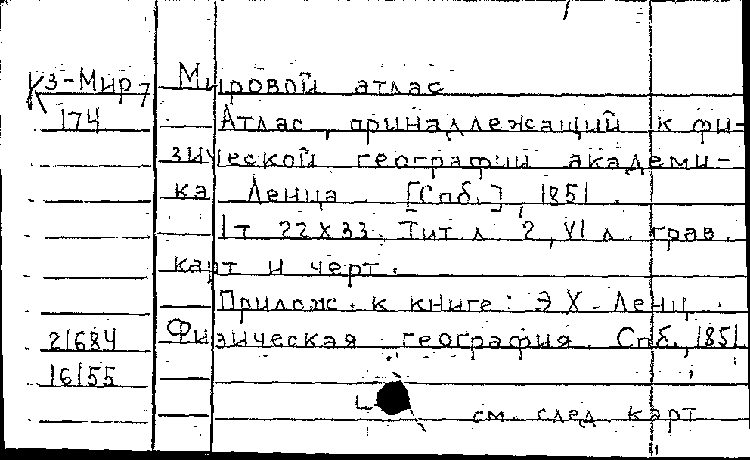 К3-Мир
174
Мировой атлас
Атлас, принадлежащий к фи-
зической географии академи-
ка Ленца. [Спб.], 1851.
1 т. 22×33. Тит. л. 2, VI л. грав.
карт и черт.
Прилож. к книге: Э.Х. Ленц.
Физическая география. Спб., 1851.
21684
16155
см. след. карт